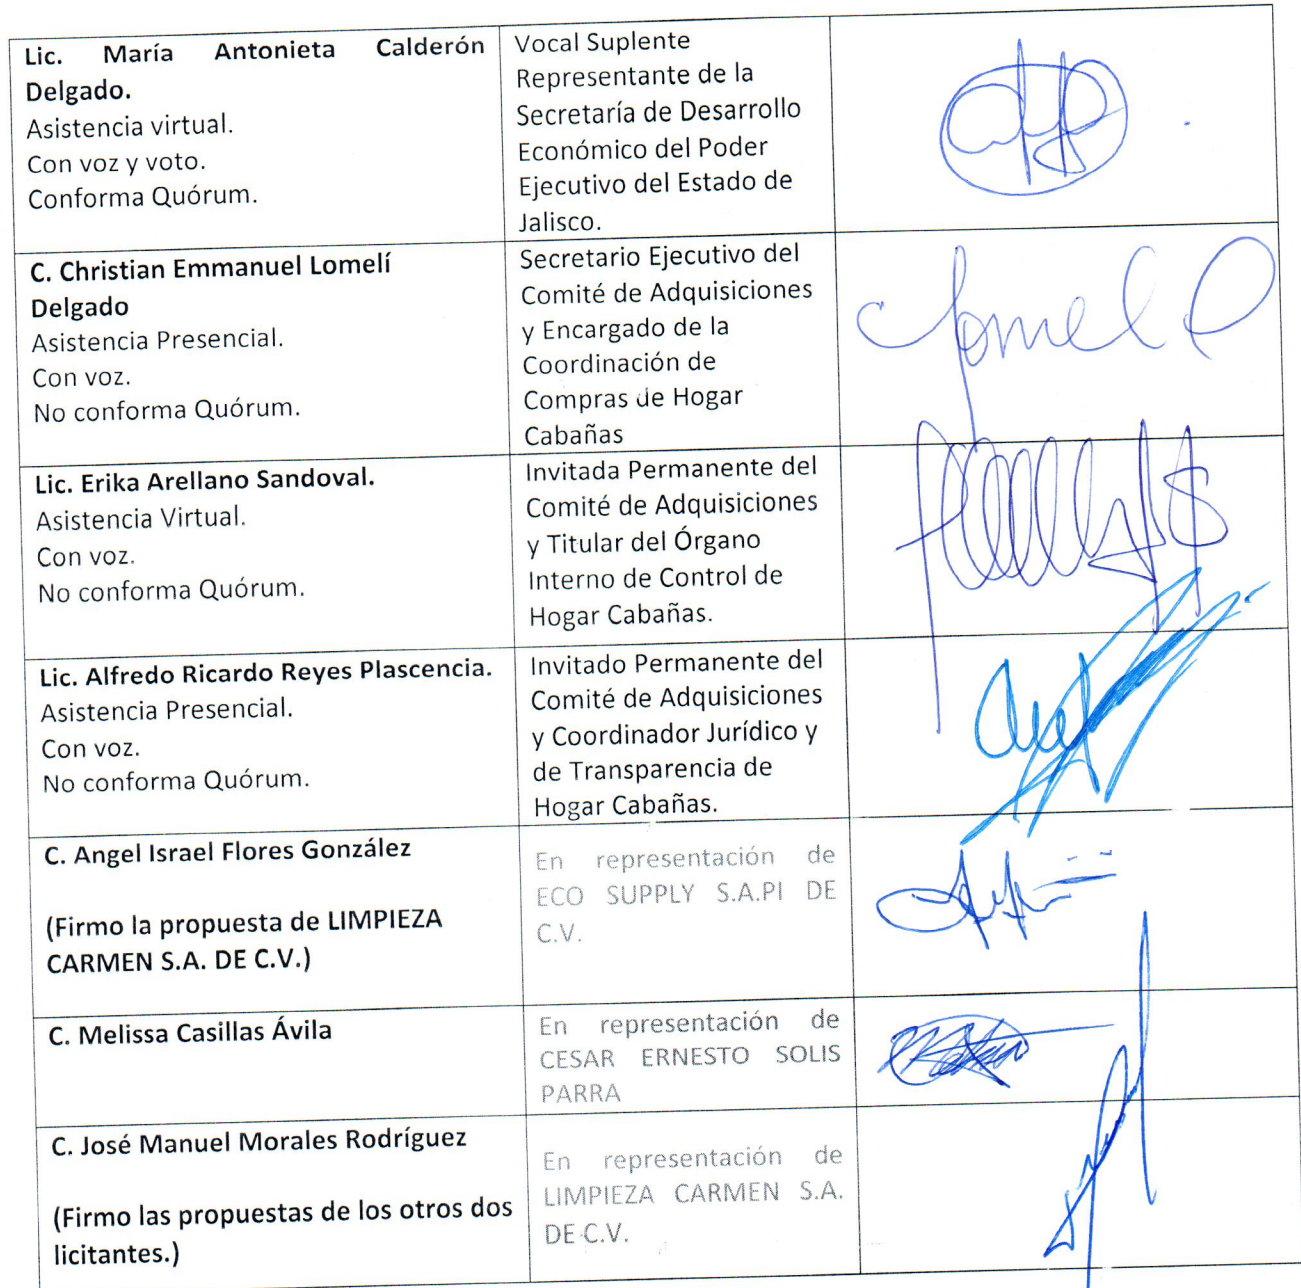 Lic. María Antonieta Calderón
Delgado.
Asistencia virtual.
Con voz y voto.
Conforma Quórum.
Vocal Suplente
Representante de la
Secretaría de Desarrollo
Económico del Poder
Ejecutivo del Estado de
Jalisco.
C. Christian Emmanuel Lomelí
Delgado
Asistencia Presencial.
Con voz.
No conforma Quórum.
Secretario Ejecutivo del
Comité de Adquisiciones
y Encargado de la
Coordinación de
Compras de Hogar
Cabañas
Lic. Erika Arellano Sandoval.
Asistencia Virtual.
Con voz.
No conforma Quórum.
Invitada Permanente del
Comité de Adquisiciones
y Titular del Órgano
Interno de Control de
Hogar Cabañas.
Lic. Alfredo Ricardo Reyes Plascencia.
Asistencia Presencial.
Con voz.
No conforma Quórum.
Invitado Permanente del
Comité de Adquisiciones
y Coordinador Jurídico y
de Transparencia de
Hogar Cabañas.
C. Angel Israel Flores González
(Firmo la propuesta de LIMPIEZA
CARMEN S.A. DE C.V.)
En representación de
ECO SUPPLY S.A.PI DE
C.V.
C. Melissa Casillas Ávila
En representación de
CESAR ERNESTO SOLIS
PARRA
C. José Manuel Morales Rodríguez
(Firmo las propuestas de los otros dos
licitantes.)
En representación de
LIMPIEZA CARMEN S.A.
DE C.V.